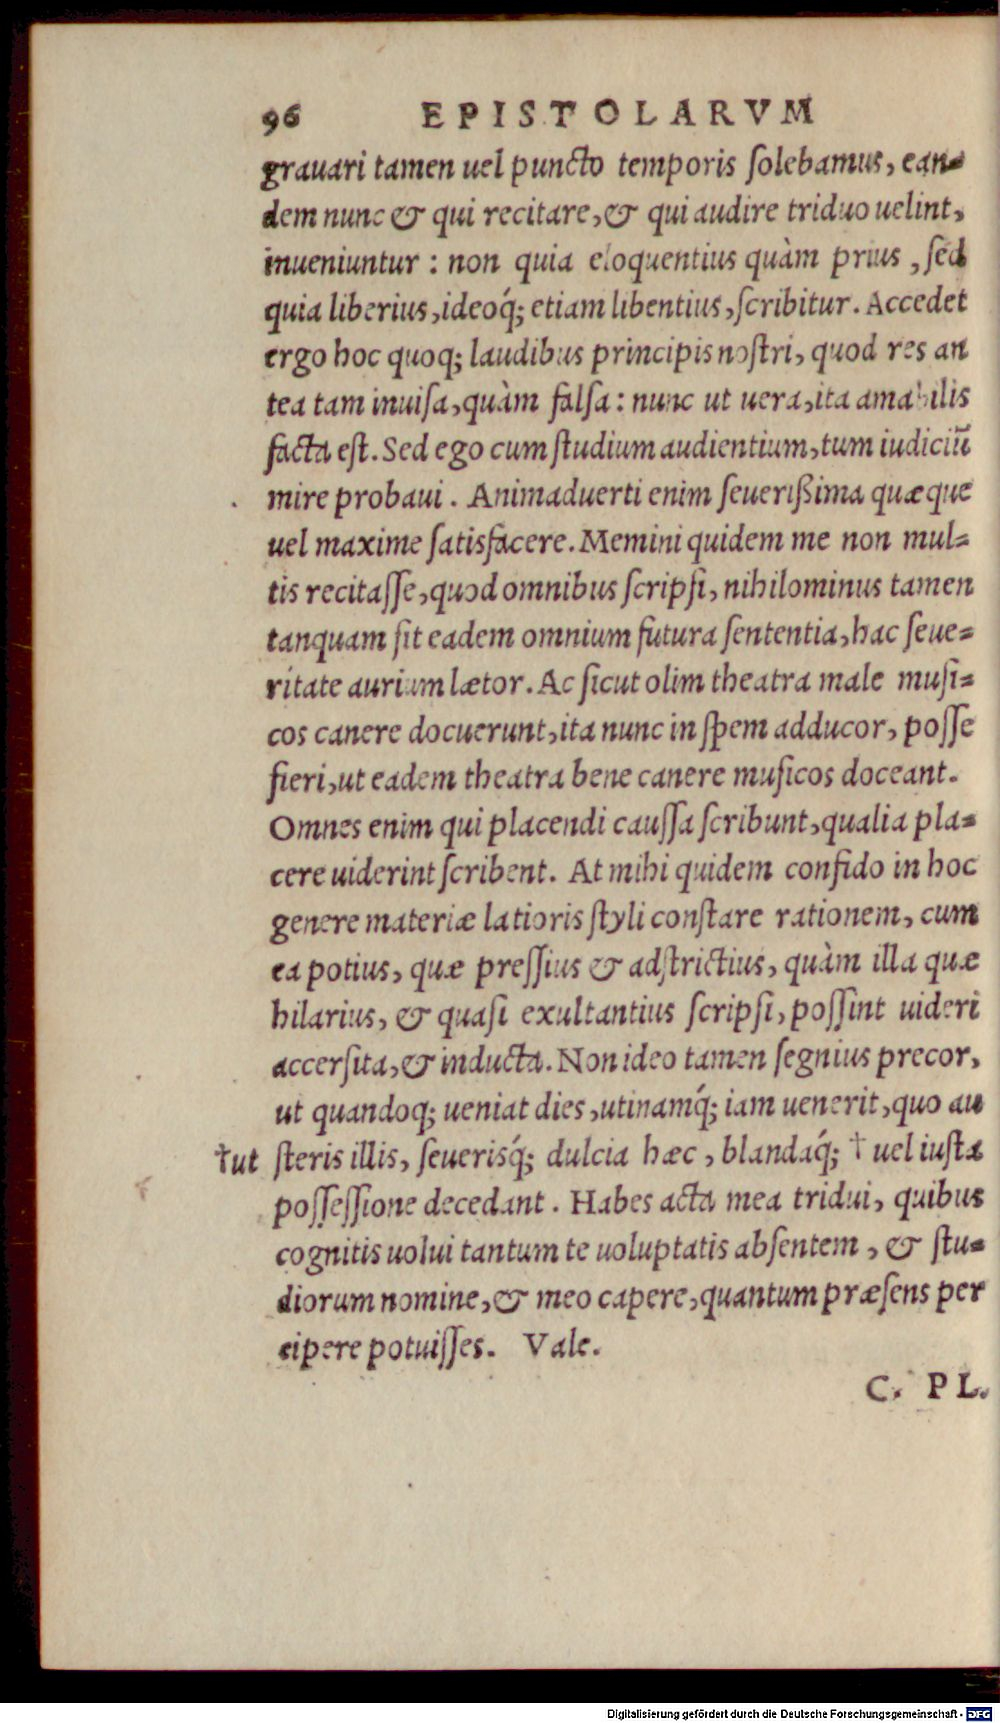 96 EPISTOLARVM
grauari tamen uel puncto temporis ſolebamus, ean-
dem nunc & qui recitare, & qui audire triduo uelint,
inueniuntur : non quia eloquentius quàm prius , ſed
quia liberius, ideoq́; etiam libentius, ſcribitur. Accedet
ergo hoc quoq; laudibus principis noſtri, quod res an
tea tam inuiſa, quàm falſa : nunc ut uera, ita amabilis
facta eſt. Sed ego cum ſtudium audientium, tum iudiciū
mire probaui . Animaduerti enim ſeuerißima quæque
uel maxime ſatisfacere. Memini quidem me non mul-
tis recitaſſe, quod omnibus ſcripſi, nihilominus tamen
tanquam ſit eadem omnium futura ſententia, hac ſeue-
ritate aurium lætor. Ac ſicut olim theatra male muſi-
cos canere docuerunt, ita nunc in ſpem adducor, poſſe
fieri, ut eadem theatra bene canere muſicos doceant.
Omnes enim qui placendi cauſſa ſcribunt, qualia pla-
cere uiderint ſcribent. At mihi quidem confido in hoc
genere materiæ latioris ſtyli conſtare rationem, cum
ea potius, quæ preſſius & adſtrictius, quàm illa quæ
hilarius, & quaſi exultantius ſcripſi, poſſint uideri
accerſita, & inducta. Non ideo tamen ſegnius precor,
ut quandoq; ueniat dies, utinamq́; iam uenerit, quo au
†ut ſteris illis, ſeuerisq́; dulcia hæc , blandaq́; † uel iuſta
poſſeſſione decedant . Habes acta mea tridui, quibus
cognitis uolui tantum te uoluptatis abſentem , & ſtu-
diorum nomine, & meo capere, quantum præſens per
cipere potuiſſes. Vale.
C. PL.
Digitalisierung gefördert durch die Deutsche Forschungsgemeinschaft - DFG